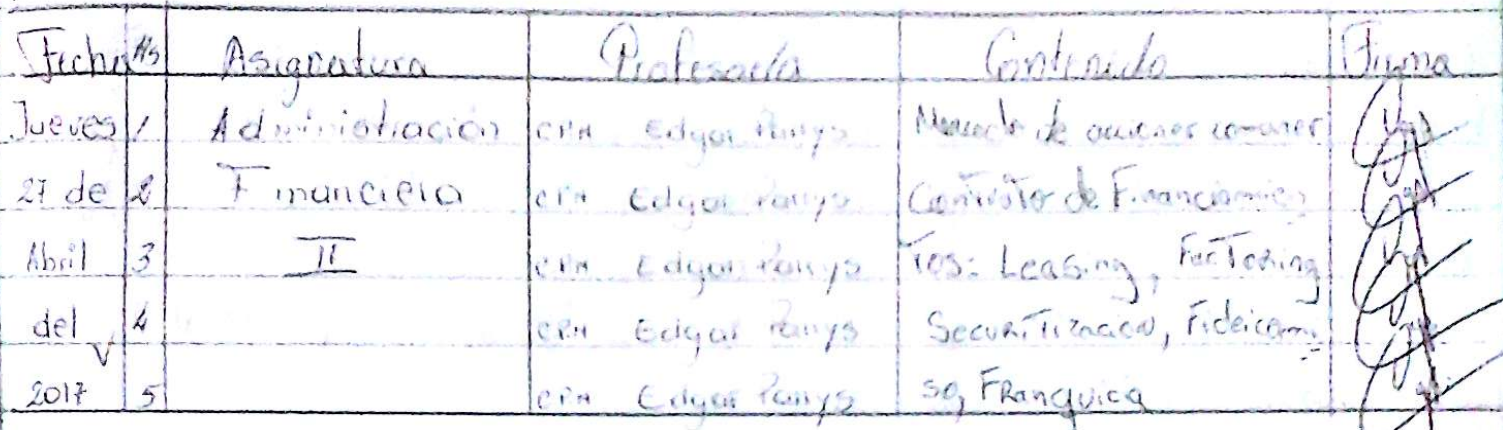 Fecha Hs Asignatura Profesor/a Contenido Firma
Jueves 1 Administración CPN Edgar Panys Mercado de acciones comunes
27 de 2 Financiera CPN Edgar Panys Contratos de Financiamien
Abril 3 II CPN Edgar Panys Tos: Leasing, Factoring
del 4 CPN Edgar Panys Securitización, Fideicomi
2017 5 CPN Edgar Panys so, Franquicia